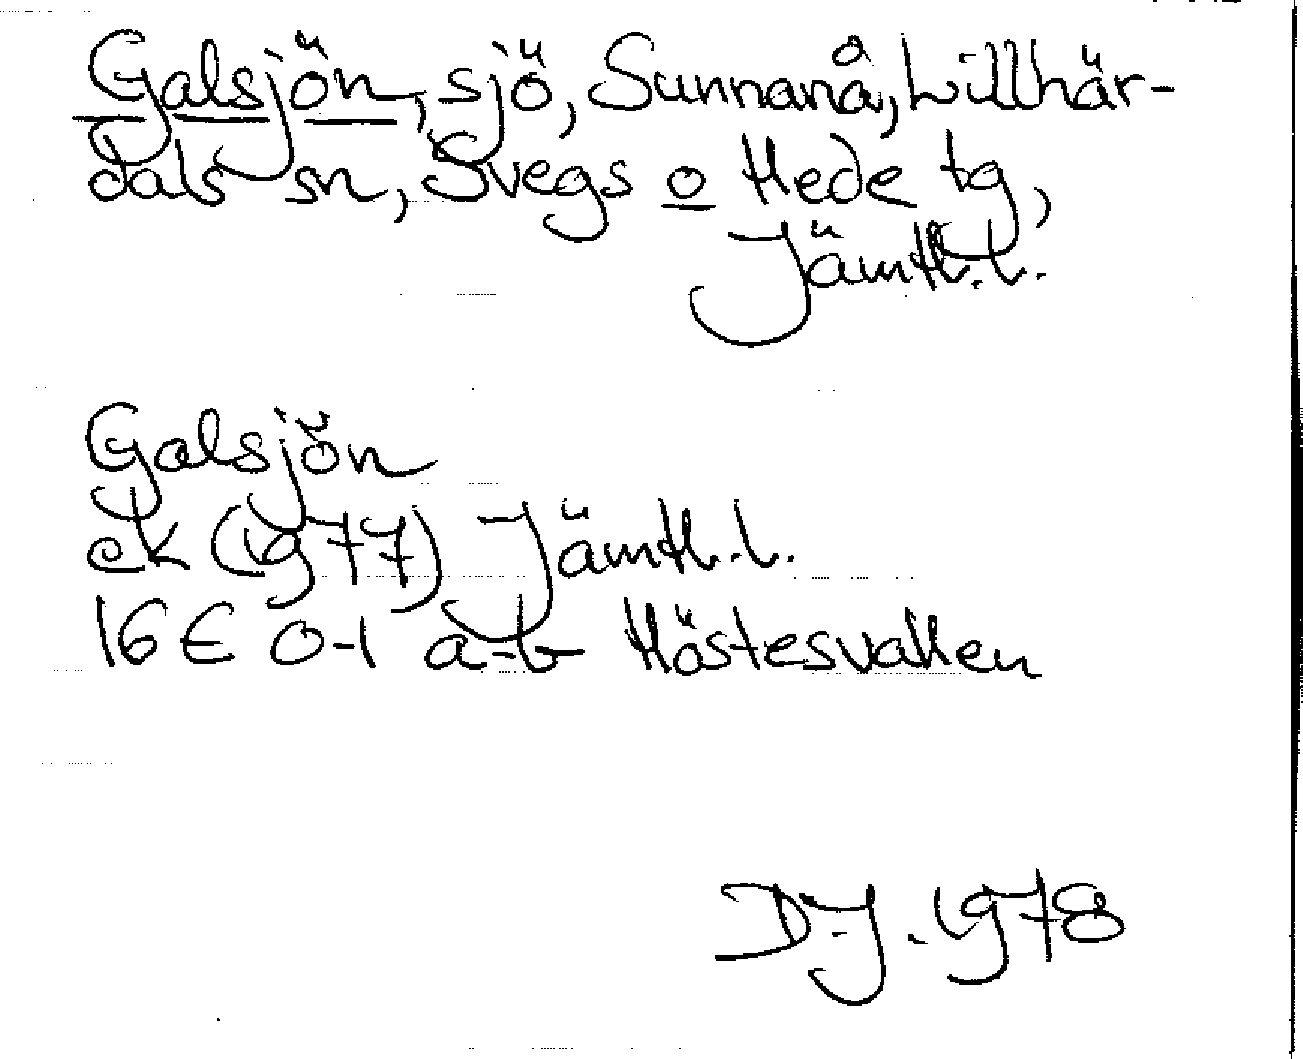 Galsjön, sjö, Sunnanå, Lillhär-
dals sn, Svegs o Hede tg,
Jämtl. l.
Galsjön
ek (1977) Jämtl. l.
16E 0-1 a-b Höstesvallen
D-J. 1978